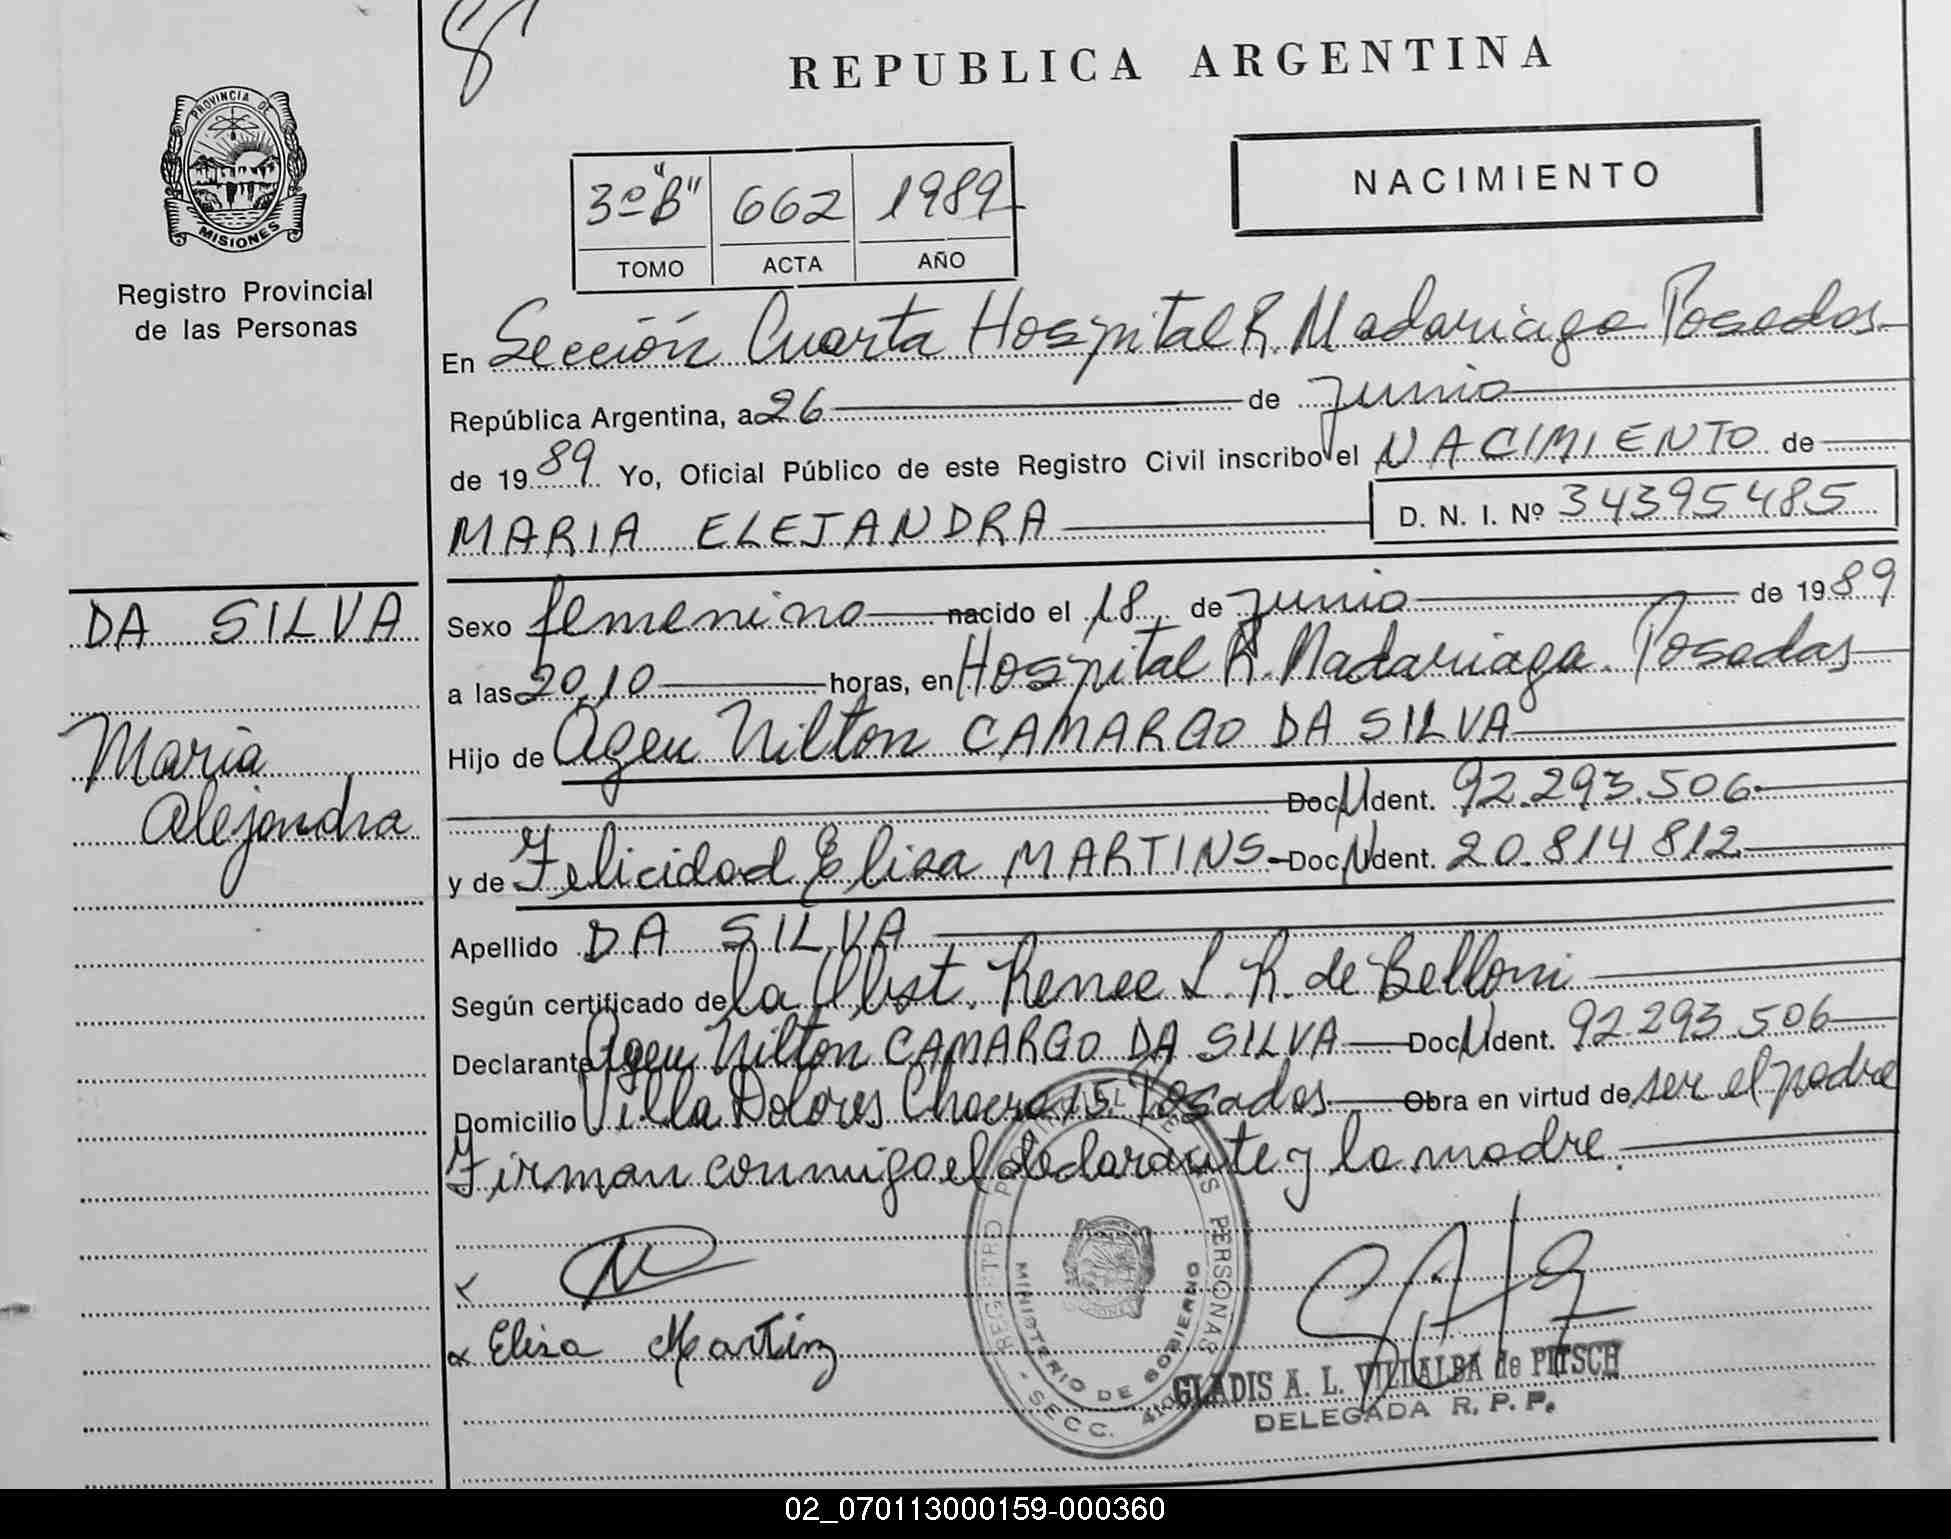 REPUBLICA ARGENTINA
PROVINCIA DE
MISIONES
Registro Provincial
de las Personas
NACIMIENTO
3º "B" 662 1989
TOMO ACTA AÑO
En Sección Cuarta Hospital R. Madariaga Posadas
República Argentina, a 26 de Junio
de 1989 Yo, Oficial Público de este Registro Civil inscribo el NACIMIENTO de
MARIA ELEJANDRA D. N. I. Nº 34395485
DA SILVA
Maria
Alejandra
Sexo femenino nacido el 18 de Junio de 1989
a las 20,10 horas, en Hospital R. Madariaga. Posadas
Hijo de Ageu Nilton CAMARGO DA SILVA
Doc. Ident. 92.293.506
y de Felicidad Elisa MARTINS Doc. Ident. 20.814.812
Apellido DA SILVA
Según certificado de la Obst. Renee L. R. de Belloni
Declarante Ageu Nilton CAMARGO DA SILVA Doc. Ident. 92.293.506
Domicilio Villa Dolores Chacra 15. Posadas Obra en virtud de ser el padre
Firman conmigo el declarante y la madre.
Elisa Martinz
REGISTRO PROVINCIAL DE LAS PERSONAS
MINISTERIO DE GOBIERNO
SECC. 4
GLADIS A. L. VILLALBA de PITSCH
DELEGADA R. P. P.
02_070113000159-000360